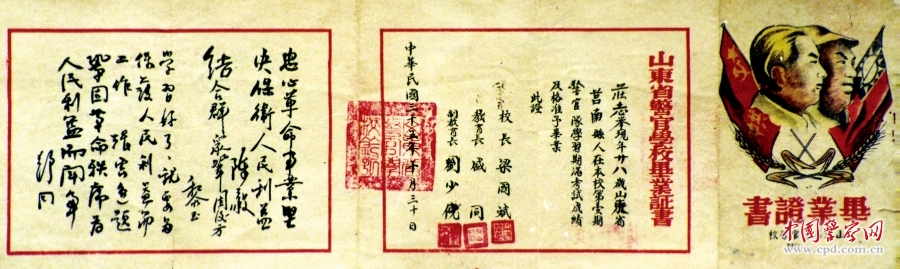 畢業證書
山東省警官學校畢業証書
莊志羣現年廿八歲山東省
莒南縣人在本校第壹期
警官隊學習期滿考試成績
及格准予畢業
此證
校長 梁國斌
教育長 盛同
副教育長 劉少傥
中華民國三十五年十月三十日
忠心革命事業堅
決保衛人民利益
陳毅
結合群眾
黎玉
學習好了,就要為
保護人民利益而
工作
鞏固革命秩序為
人民利益而鬥爭
舒同
中国警察网
www.cpd.com.cn